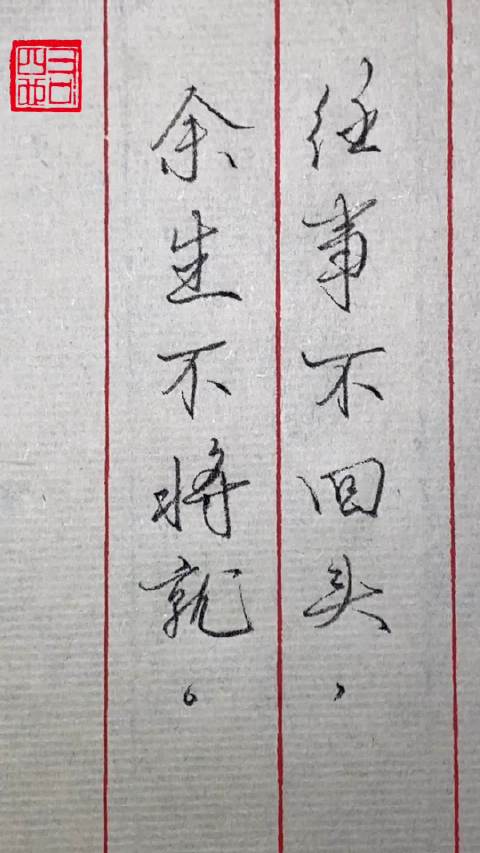 往事不回头，
余生不将就。